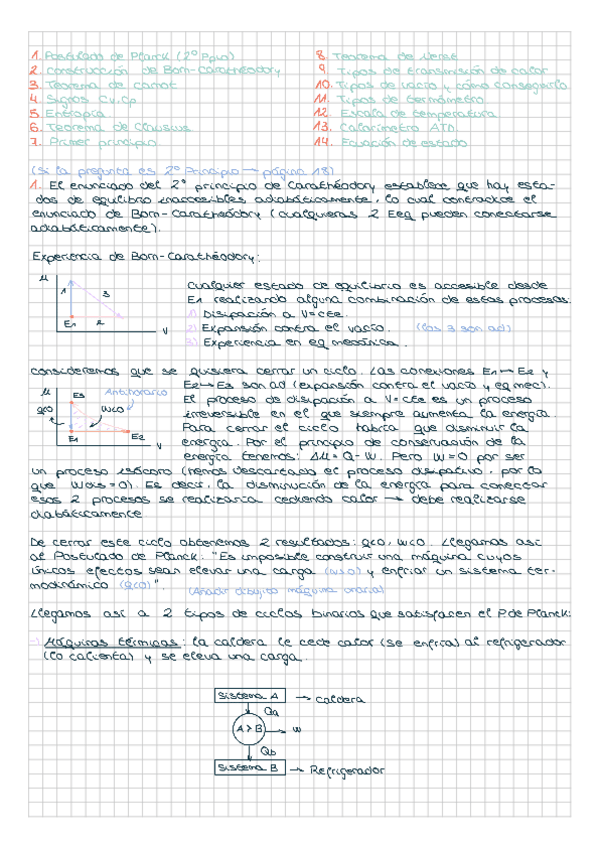 1. Postulado de Planck (2º Ppio)
2. Construcción de Born-Carathéodory
3. Teorema de Carnot
4. Signos Cv, Cp
5. Entropía
6. Teorema de Clausius
7. Primer principio
8. Teorema de Nernst
9. Tipos de transmisión de calor
10. Tipos de vacío y cómo conseguirlo
11. Tipos de termómetro
12. Escala de temperatura
13. Calorímetro ATD
14. Ecuación de estado
(Si la pregunta es 2º Principio → página 18)
1. El enunciado del 2º principio de Carathéodory establece que hay esta-
dos de equilibrio inaccesibles adiabáticamente, lo cual contradice el
enunciado de Born-Carathéodory (cualquieras 2 Eeq pueden conectarse
adiabáticamente).
Experiencia de Born-Carathéodory:
μ
1
3
E1
2
V
Cualquier estado de equilibrio es accesible desde
E1 realizando alguna combinación de estos procesos:
1) Disipación a V=cte.
2) Expansión contra el vacío. (los 3 son ad)
3) Experiencia en eq mecánica.
consideremos que se quisiera cerrar un ciclo. Las conexiones E1→E2 y
E2→E3 son ad (expansión contra el vacío y eq mec).
μ
E3
Antihorario
Q<0
W<0
E1
E2
V
El proceso de disipación a V=cte es un proceso
irreversible en el que siempre aumenta la energía.
Para cerrar el ciclo habría que disminuir la
energía. Por el principio de conservación de la
energía tenemos: Δμ = Q - W. Pero W=0 por ser
un proceso isócoro (hemos descartado el proceso disipativo, por lo
que Wdis = 0). Es decir, la disminución de la energía para conectar
esos 2 procesos se realizaría cediendo calor → debe realizarse
diabáticamente
De cerrar este ciclo obtenemos 2 resultados: Q<0, W<0. Llegamos así
al Postulado de Planck: "Es imposible construir una máquina cuyos
únicos efectos sean elevar una carga (W>0) y enfriar un sistema ter-
modinámico (Q<0)". (Añadir dibujito máquina unaria)
Llegamos así a 2 tipos de ciclos binarios que satisfacen el P de Planck:
→ Máquinas térmicas: la caldera le cede calor (se enfría) al refrigerador
(lo calienta) y se eleva una carga.
Sistema A → Caldera
Qa
A > B → W
Qb
Sistema B → Refrigerador